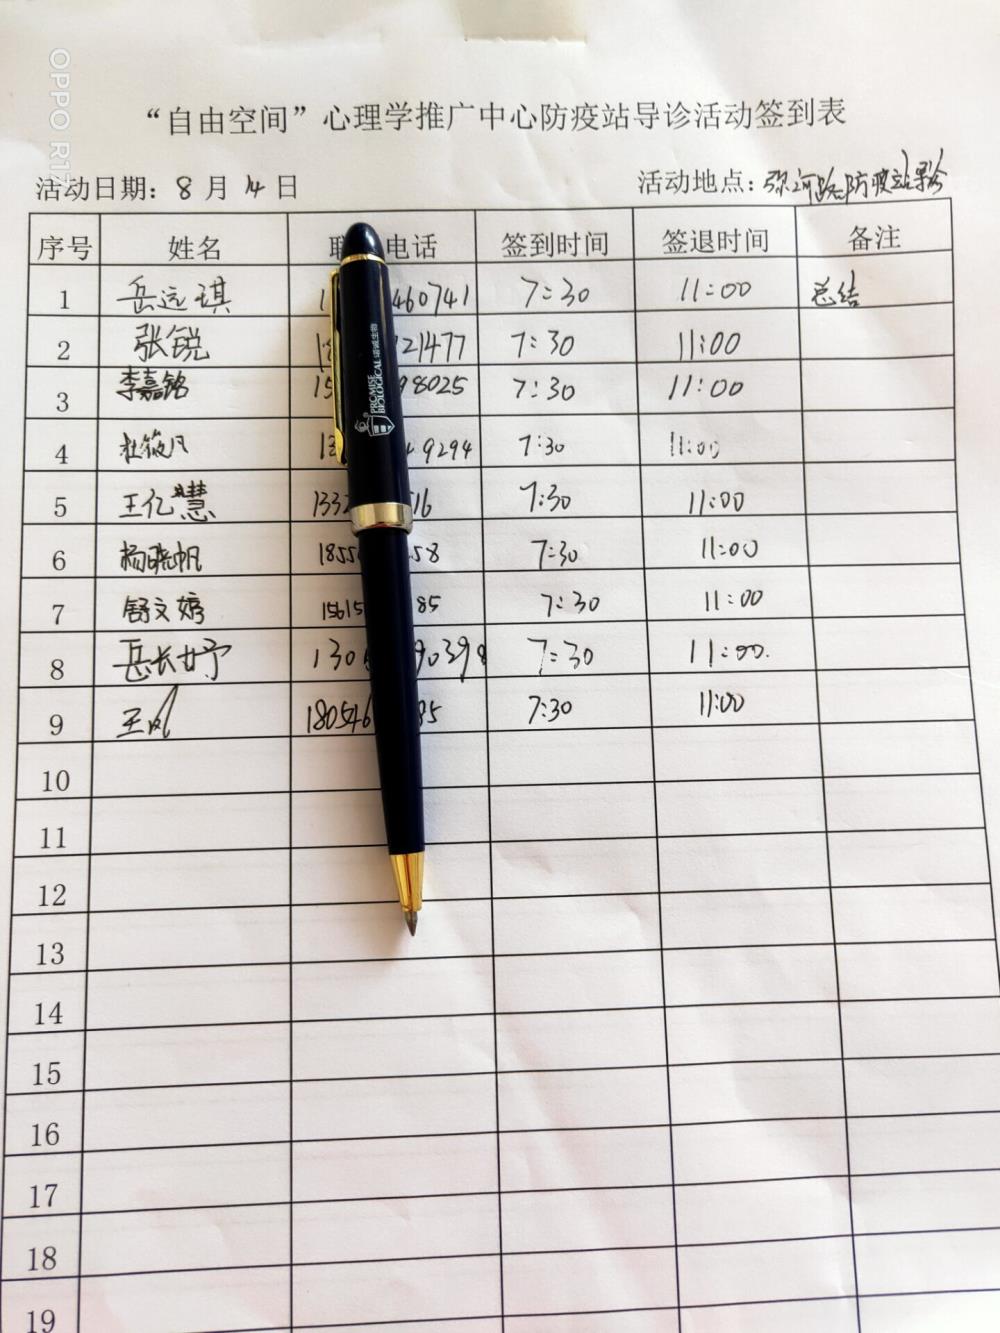 OPPO R17
“自由空间”心理学推广中心防疫站导诊活动签到表
活动日期: 8 月 14 日 活动地点: 弥河路防疫站导诊
序号 姓名 电话 签到时间 签退时间 备注
1 岳远琪 1 460741 7:30 11:00 总结
2 张锐 18 21477 7:30 11:00
3 李嘉铭 15 98025 7:30 11:00
4 杜筱凡 13 9294 7:30 11:00
5 王亿慧 133 16 7:30 11:00
6 杨晓帆 185 58 7:30 11:00
7 舒文婷 15615 85 7:30 11:00
8 岳长妤 130 90398 7:30 11:00.
9 王凤 180546 85 7:30 11:00
10
11
12
13
14
15
16
17
18
19
PROMISE
BIOLOGICAL 诺诚生物